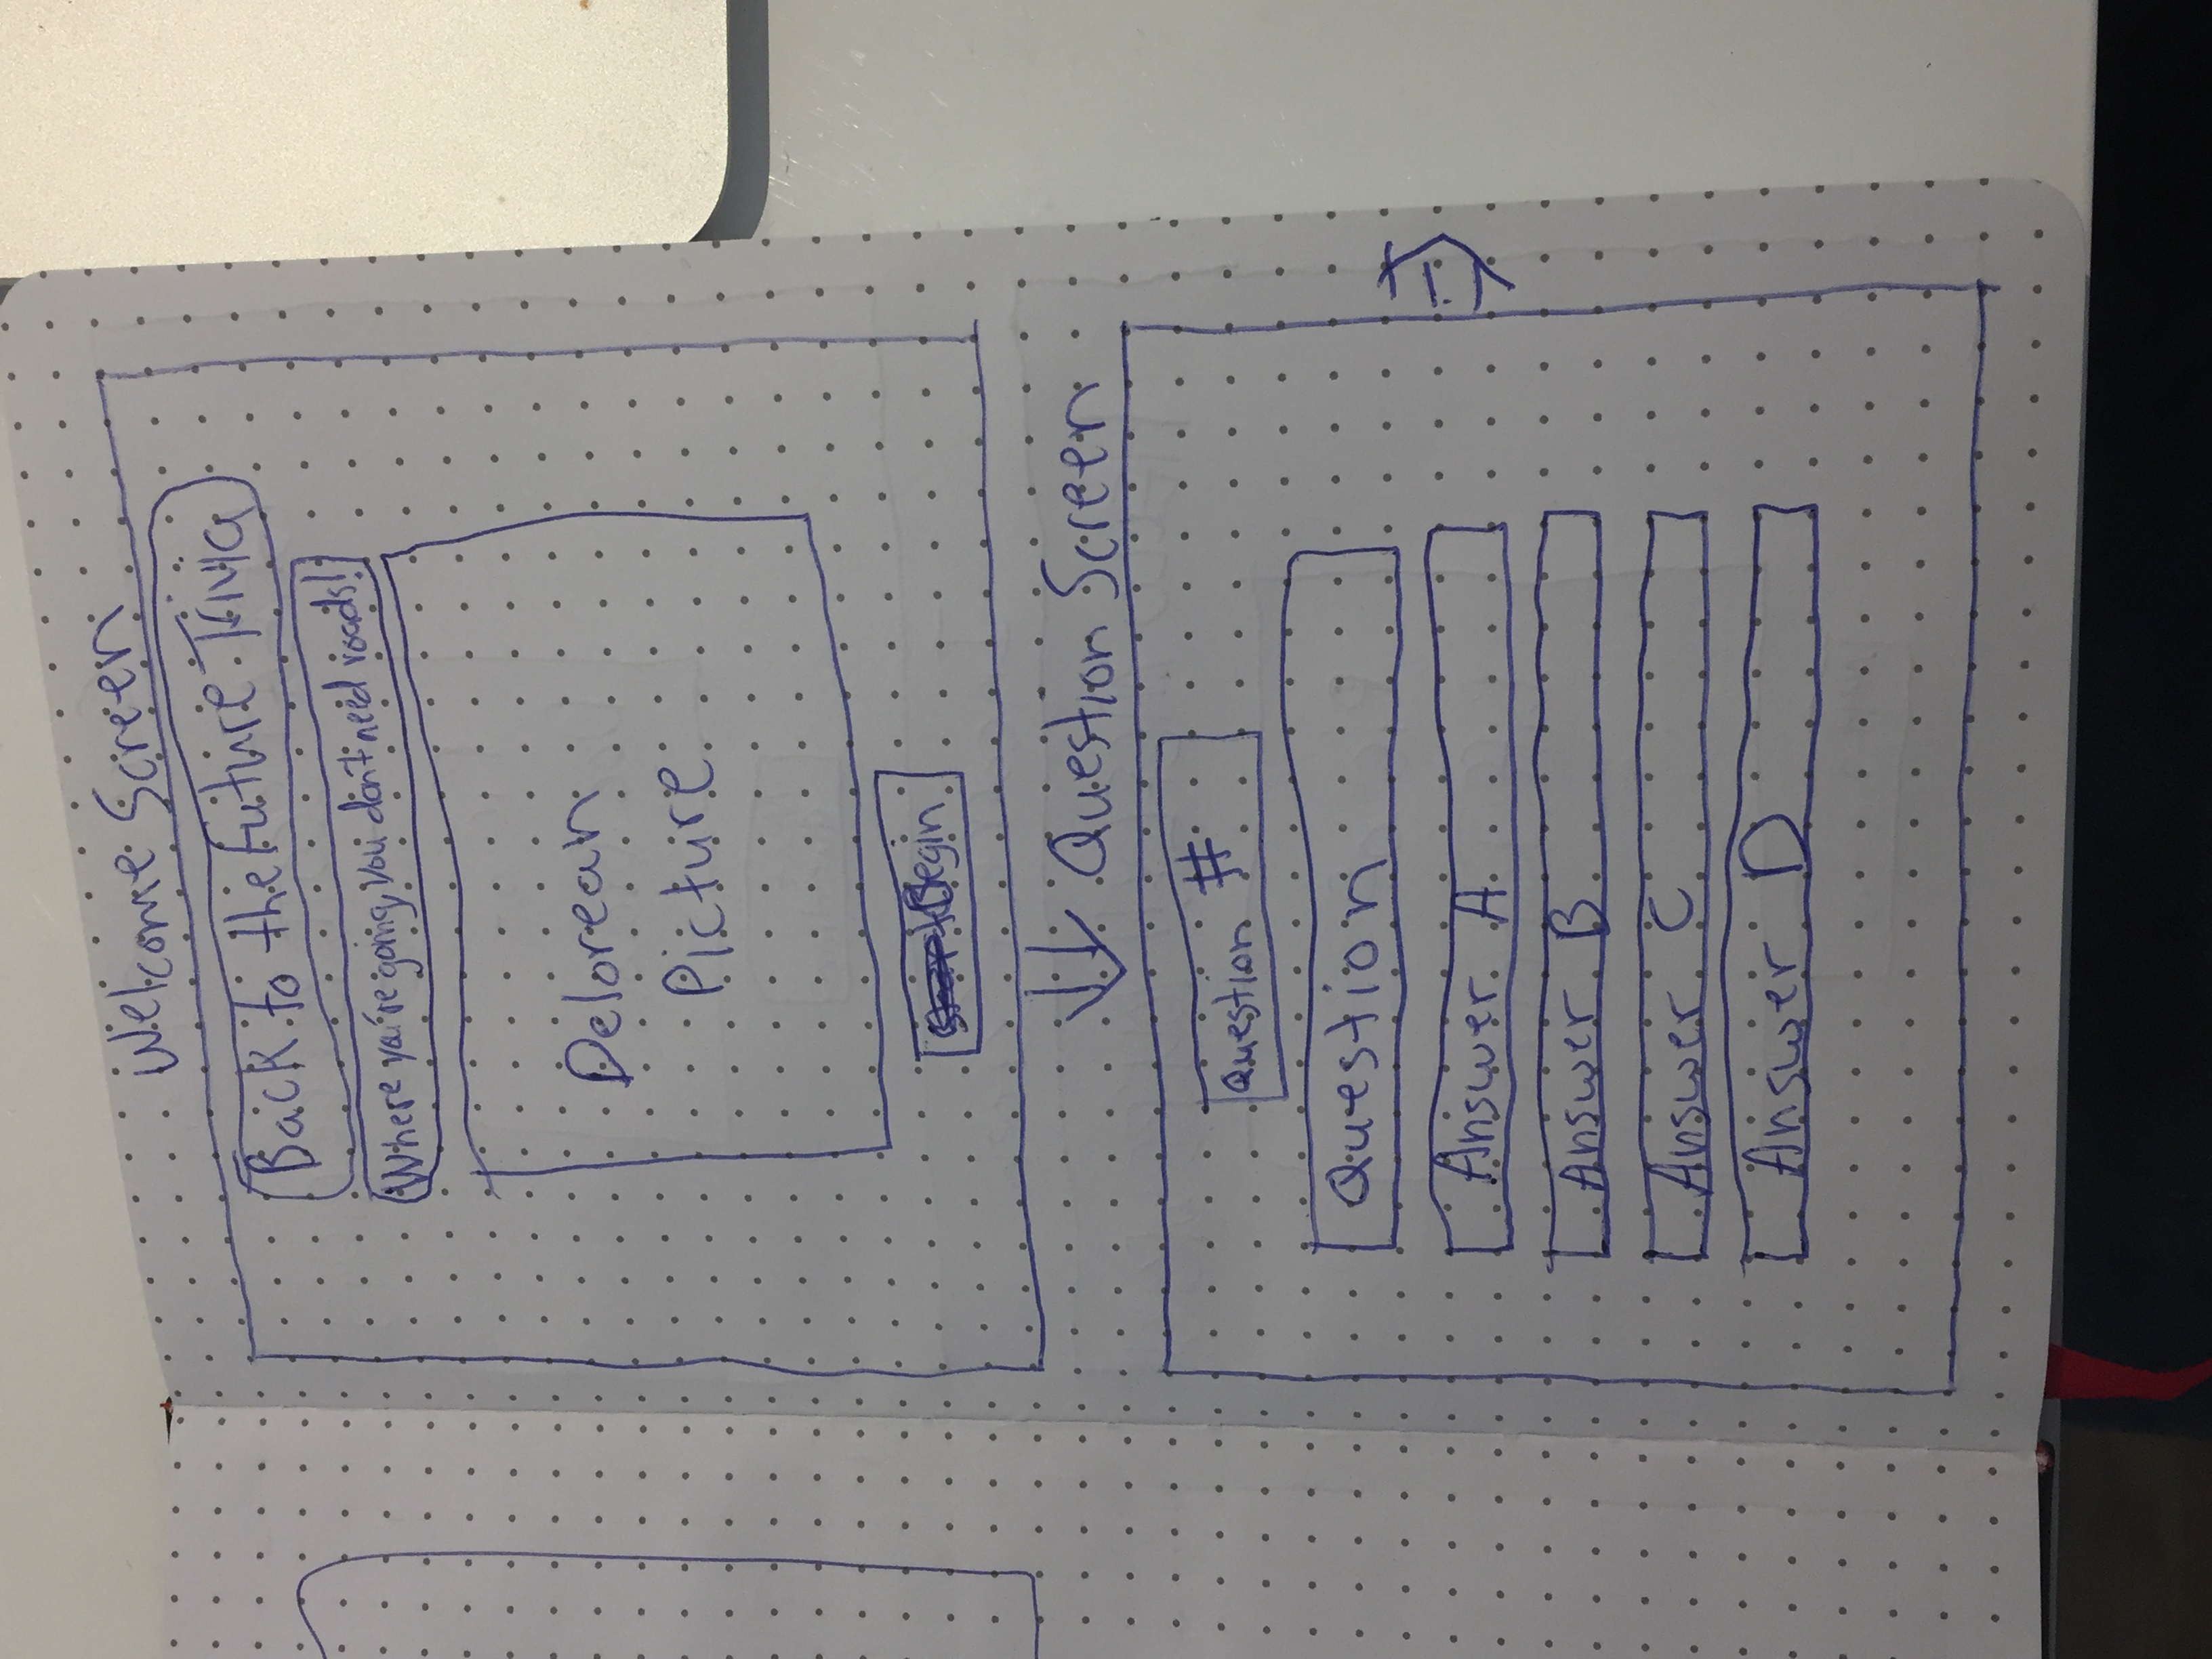 Welcome Screen
Back to the Future Trivia
Where you're going, you don't need roads!
Delorean
Picture
Begin
Question Screen
Question #
Question
Answer A
Answer B
Answer C
Answer D